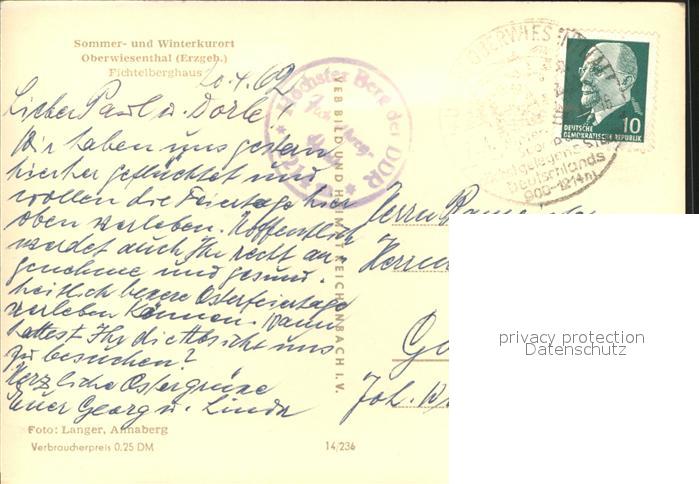 Sommer- und Winterkurort
Oberwiesenthal (Erzgeb.)
Fichtelberghaus
20.4.62
Lieber Paul u. Dorle!
Wir haben uns gestern
hierher geflüchtet und
wollen die Feiertage hier
oben verleben. Hoffentlich
werdet auch Ihr recht an-
genehme und gesund-
heitlich bessere Osterfeiertage
verleben können. Wann
hattest Ihr die Absicht uns
zu besuchen?
Herzliche Ostergrüsse
Euer Georg u. Linda
Foto: Langer, Annaberg
Verbraucherpreis 0,25 DM
14/236
VEB BILD UND HEIMAT REICHENBACH I. V.
Höchster Berg der DDR
OBERWIESENTHAL
Deutschlands
900-1214m
DEUTSCHE
DEMOKRATISCHE REPUBLIK
10
Herrn
Herrn
Joh.
privacy protection
Datenschutz